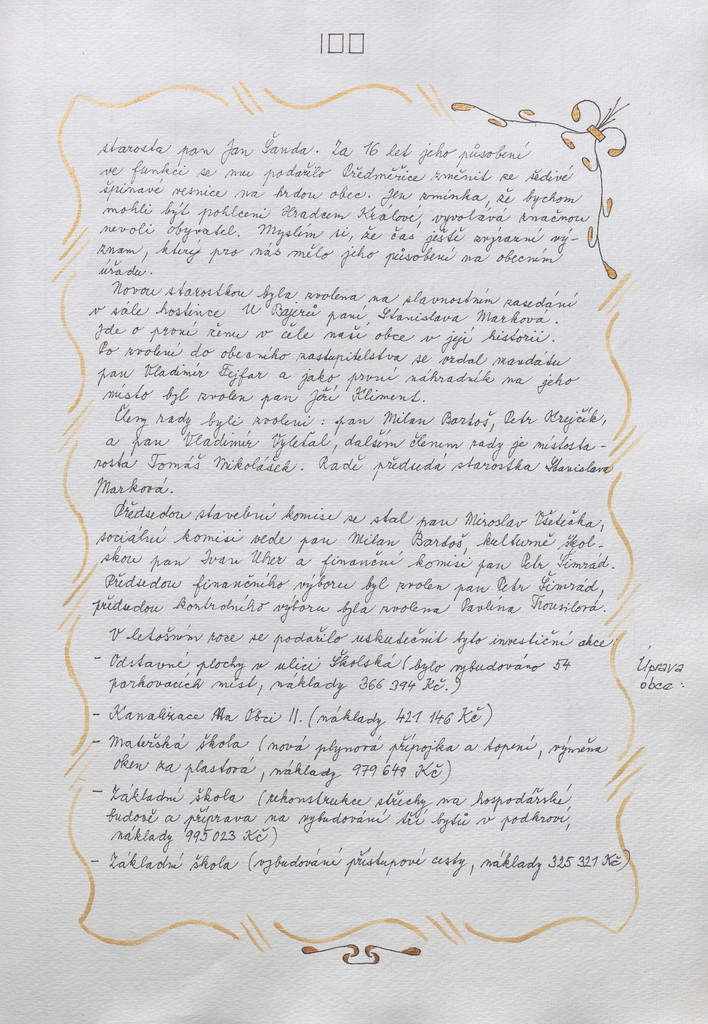 100
starosta pan Jan Šanda. Za 16 let jeho působení
ve funkci se mu podařilo Předměřice změnit ze šedivé
špinavé vesnice na hrdou obec. Jen zmínka, že bychom
mohli být pohlceni Hradcem Králové, vyvolává značnou
nevoli obyvatel. Myslím si, že čas ještě zvýrazní vý-
znam, který pro nás mělo jeho působení na obecním
úřadu.
Novou starostkou byla zvolena na slavnostním zasedání
v sále hostince U Bajerů paní Stanislava Marková.
Jde o první ženu v čele naší obce v její historii.
Po zvolení do obecního zastupitelstva se vzdal mandátu
pan Vladimír Fejfar a jako první náhradník na jeho
místo byl zvolen pan Jiří Kliment.
Členy rady byli zvoleni : pan Milan Bartoš, Petr Krejčík,
a pan Vladimír Vyleťal, dalším členem rady je místosta-
rosta Tomáš Mikolášek. Radě předsedá starostka Stanislava
Marková.
Předsedou stavební komise se stal pan Miroslav Všetička,
sociální komisi vede pan Milan Bartoš, kulturně škol-
skou pan Ivan Uher a finanční komisi pan Petr Šimrád.
Předsedou finančního výboru byl zvolen pan Petr Šimrád,
předsedou kontrolního výboru byla zvolena Pavlína Trousilová.
V letošním roce se podařilo uskutečnit tyto investiční akce:
- Odstavné plochy v ulici Školská (bylo vybudováno 54
parkovacích míst, náklady 366 394 Kč.)
Úprava
obce:
- Kanalizace Na Obci II. (náklady 421 146 Kč)
- Mateřská škola (nová plynová přípojka a topení, výměna
oken za plastová, náklady 979 649 Kč)
- Základní škola (rekonstrukce střechy na hospodářské
budově a příprava na vybudování tří bytů v podkroví,
náklady 995 023 Kč)
- Základní škola (vybudování přístupové cesty, náklady 325 321 Kč)